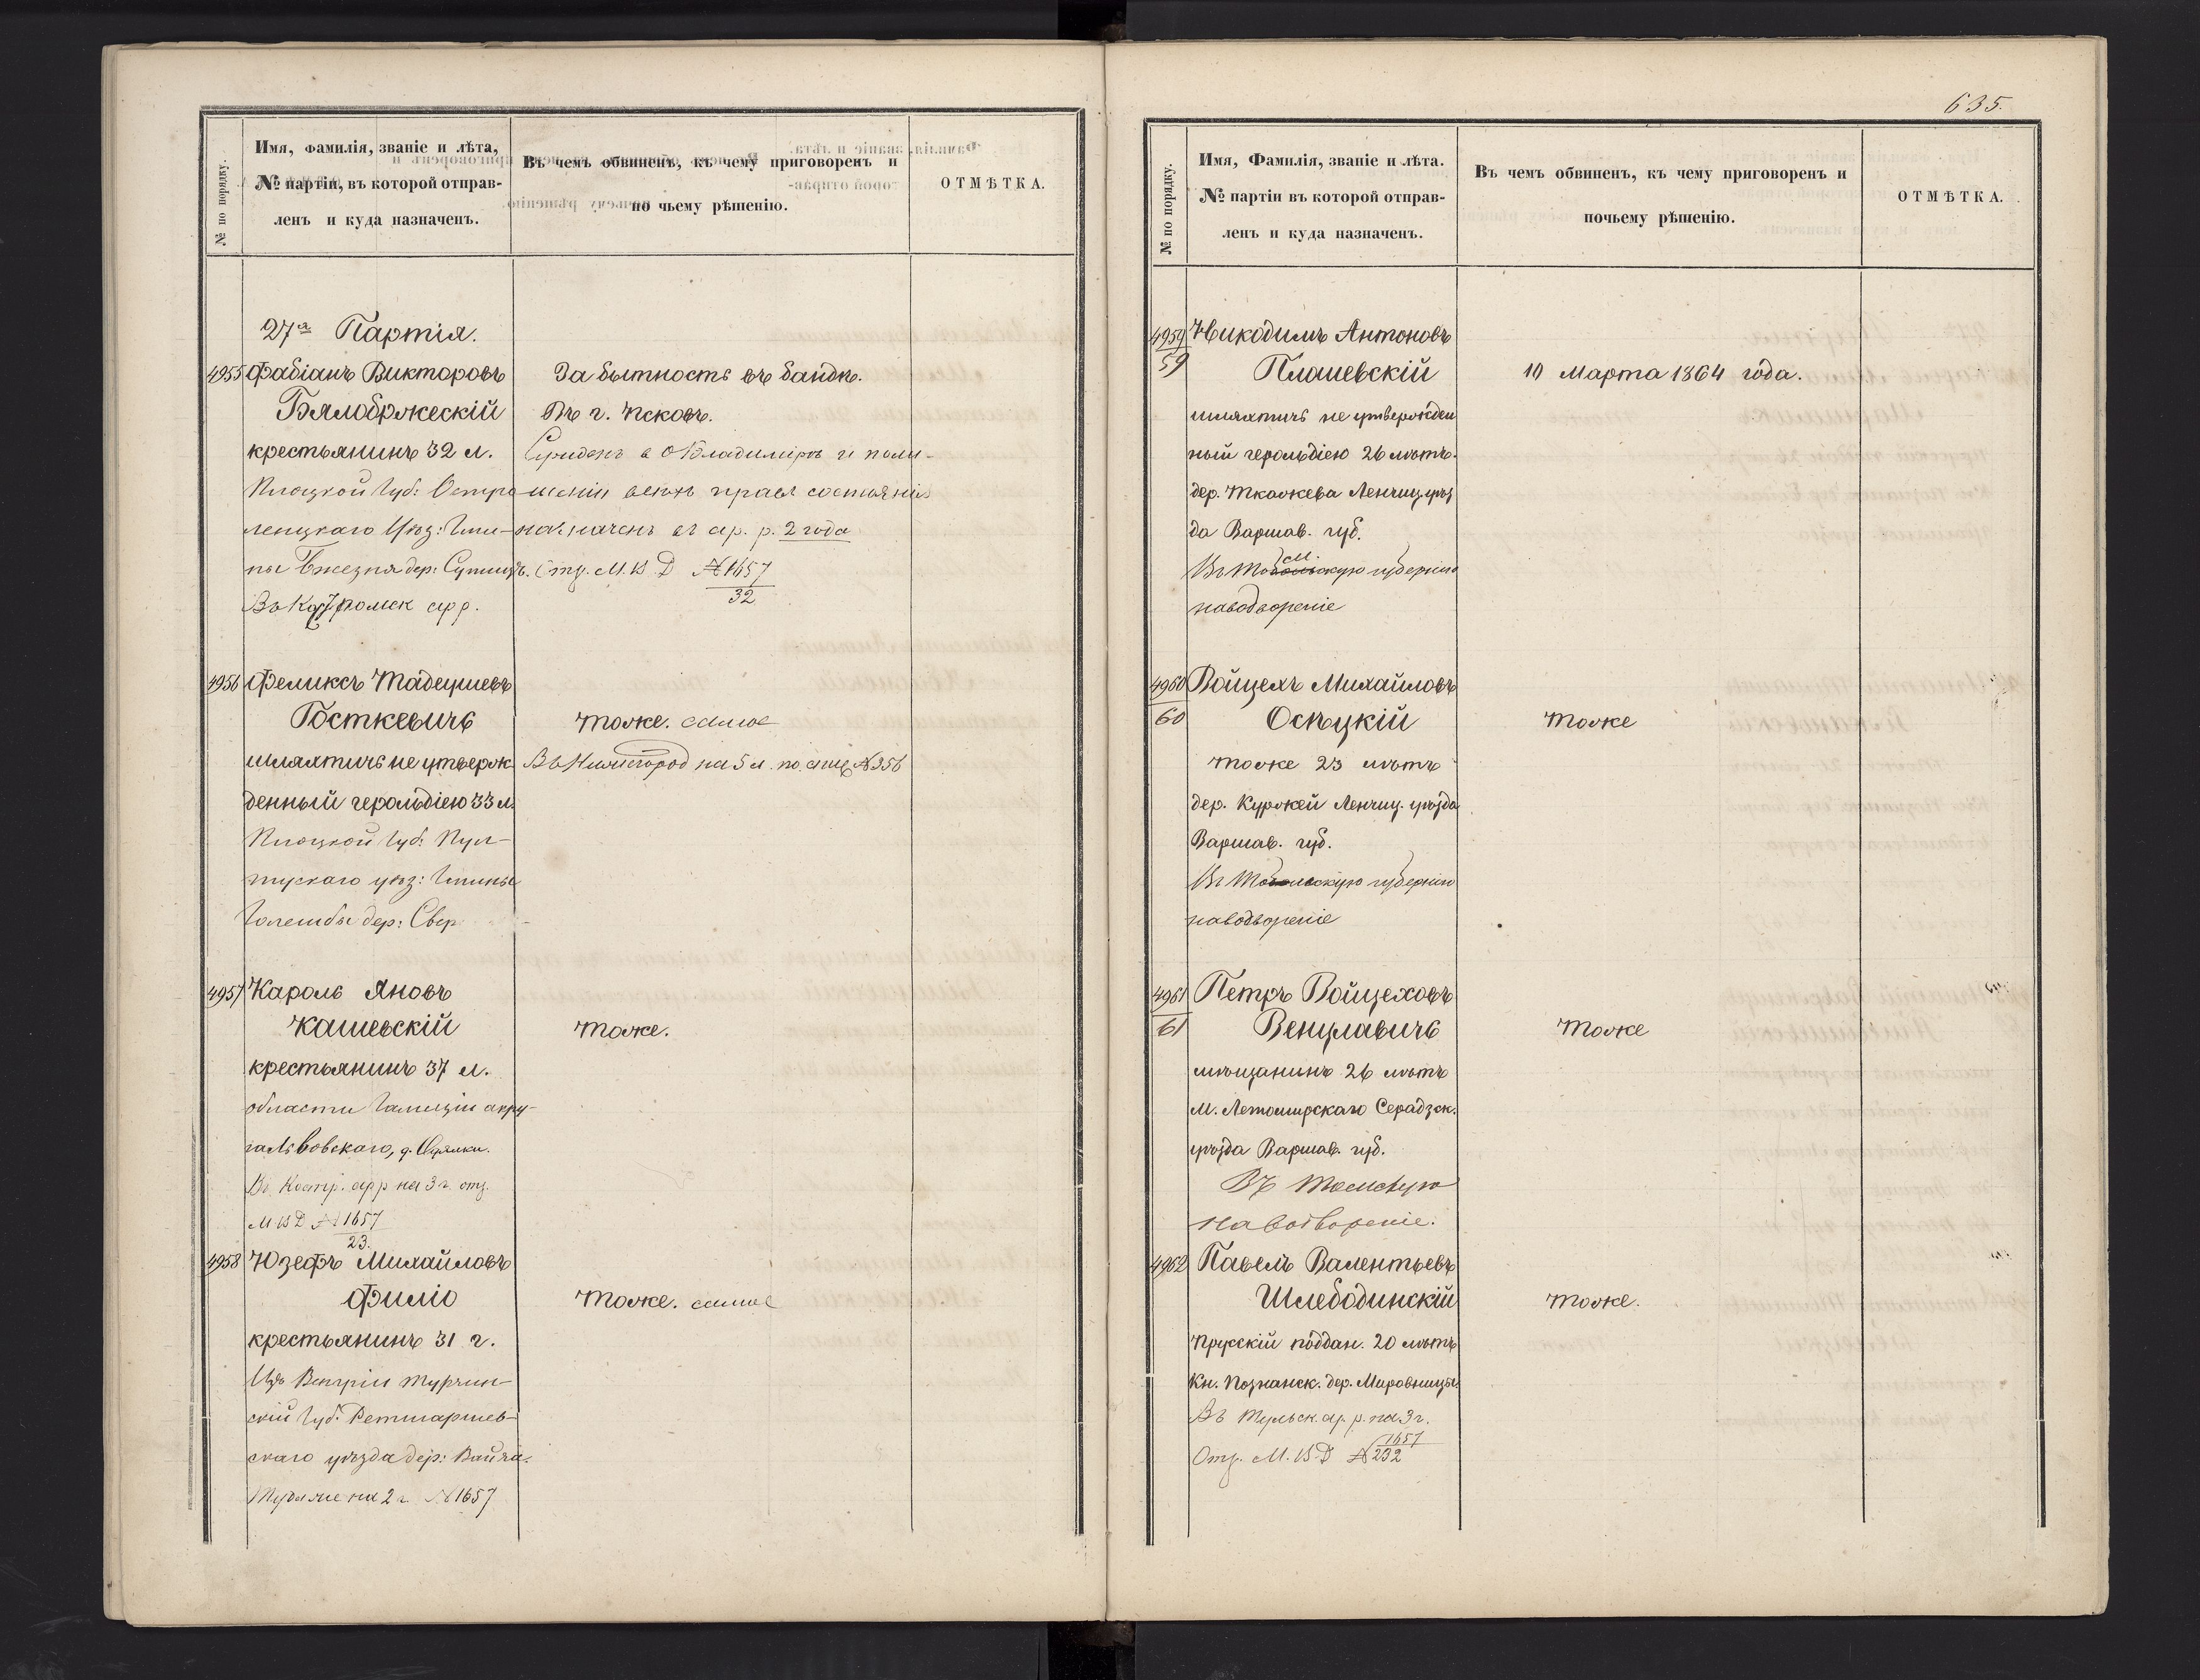 № по порядку.
Имя, фамилія, званіе и лѣта,
№ партіи, въ которой отправ-
ленъ и куда назначенъ.
Въ чемъ обвиненъ, къ чему приговоренъ и
по чьему рѣшенію.
ОТМѢТКА.
27я Партія.
4955 Фабіанъ Викторовъ
Бялобржескій
крестьянинъ 32 л.
Плоцкой Губ: Остро-
ленцкаго Уѣз: Гми-
ны дер:
Въ ар р.
За бытность въ бандѣ.
Въ г. Псковъ.
и лише-
ніи всѣхъ правъ состоянія
назначенъ въ ар. р. 2 года
Отз. М. В. Д № 1657
32
4956 Феликсъ Тадеушевъ
Госткевичъ
шляхтичъ не утверж
денный герольдіею 33 л.
Плоцкой Губ: Пул-
тускаго уѣз: Гмины
дер:
Тоже. самое
на 5 л. по № 356
4957 Кароль Яновъ
Кашевскій
крестьянинъ 37 л.
области Галиціи окру-
га Львовскаго, д.
Въ Костр. ар р на 3 г. отз.
М В Д № 1657
23.
Тоже.
4958 Юзефъ Михайловъ
Филіо
крестьянинъ 31 г.
Изъ Венгріи Турчин-
скій Губ:
скаго уѣзда дер:
на 2 г. № 1657
Тоже. самое
635.
№ по порядку.
Имя, Фамилія, званіе и лѣта.
№ партіи въ которой отправ-
ленъ и куда назначенъ.
Въ чемъ обвиненъ, къ чему приговоренъ и
почьему рѣшенію.
ОТМѢТКА.
4959 Никодимъ Антоновъ
59 Плашевскій
шляхтичъ не утвержден
ный герольдіею 26 лѣтъ.
дер. Ленчиц. уѣз
да Варшав. губ.
губернію
наводвореніе
10 Марта 1864 года.
4960 Войцехъ Михайловъ
60 Осѣцкій
тоже 23 лѣтъ
дер. Куржей Ленчиц. уѣзда
Варшав. губ.
губернію
наводвореніе
Тоже
4961 Петръ Войцеховъ
61 Венцлавичъ
мѣщанинъ 26 лѣтъ
м. Серадзск.
уѣзда Варшав. губ.
ВЪ Томскую
на водвореніе.
Тоже
4962 Павелъ Валентьевъ
Шлебодинскій
Прусскій поддан. 20 лѣтъ
Кн. Познанск. дер.
Въ Тульск. ар. р. на 3 г.
Отз. М. В Д № 1657
232
Тоже.